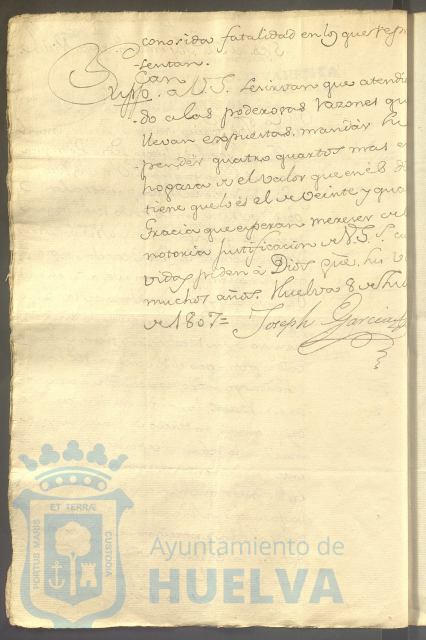 conosida fatalidad en los que repre
sentan.
can
Suppo. a V. S. se sirvan que atendi
do a las poderosas razones que
llevan expuestas, mandar
pender quatro quartos mas e
hogasa el valor que en el
tiene que lo es el de veinte y qua
Gracia que esperan mereser de
notoria justificacion de V. S. 
vida piden à Dios que. 
muchos años. Huelva 8 de 
de 1807= Joseph Garcia
PORTUS MARIS
ET TERRÆ
CUSTODIA
Ayuntamiento de
HUELVA